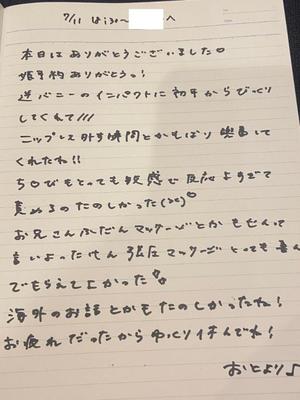 7/11 はじめ〜 へ
本日はありがとうございました♡
姫予約ありがとっ!
逆バニーのインパクトに初手からびっくり
してくれて///
ニップレス外す瞬間とかもばり興奮して
くれたね!!
ち○びもとっても敏感で反応よすぎて
責めるのたのしかった
お兄さんふだんマッサージとかもせんって
言いよったけん 強圧マッサージとっても喜ん
でもらえてよかった
海外のお話とかもたのしかったね!
お疲れだったからゆっくり休んでね!
おとより♪